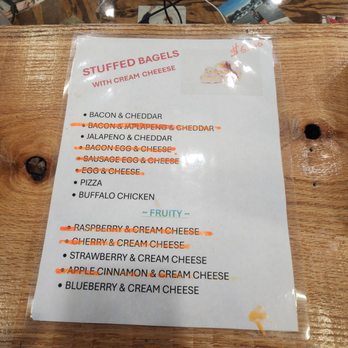 STUFFED BAGELS
WITH CREAM CHEESE
• BACON & CHEDDAR
• BACON & JAPLAPENO & CHEDDAR
• JALAPENO & CHEDDAR
• BACON EGG & CHEESE
• SAUSAGE EGG & CHEESE
• EGG & CHEESE
• PIZZA
• BUFFALO CHICKEN
~ FRUITY ~
• RASPBERRY & CREAM CHEESE
• CHERRY & CREAM CHEESE
• STRAWBERRY & CREAM CHEESE
• APPLE CINNAMON & CREAM CHEESE
• BLUEBERRY & CREAM CHEESE